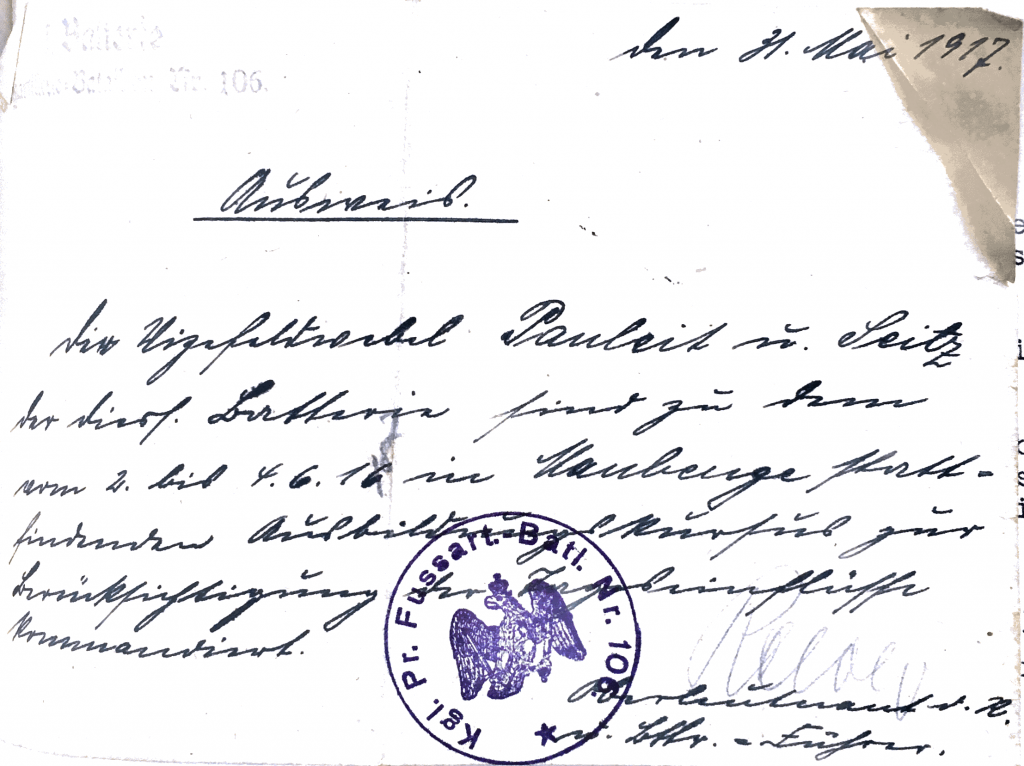 Batterie
Nr. 106.
den 31. Mai 1917.
Ausweis.
Die Vizefeldwebel Pauleit u. Seitz
der diess. Batterie sind zu dem
vom 2. bis 4.6.17 in Maubeuge statt-
findenden Ausbildungskursus zur
Berücksichtigung der Tageseinflüsse
kommandiert.
Kgl. Pr. Fussart. Batl. Nr. 106
Oberleutnant d. R.
u. Bttr.-Führer.